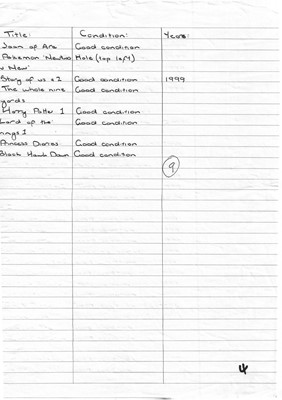 Title: Condition: Year:
Joan of Arc Good condition
Pokemon 'Mewtwo Hole (top left)
v Mew'
Story of us x2 Good condition 1999
The whole nine Good condition
yards
Harry Potter 1 Good condition
Lord of the Good condition
rings 1
Princess Diaries Good condition
Black Hawk Down Good condition
9
4